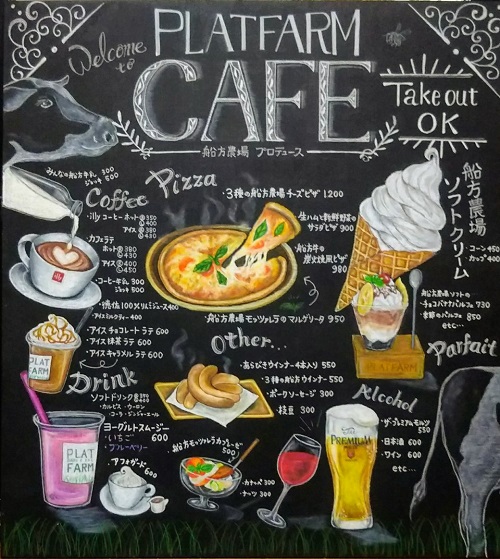 Welcome to
PLATFARM
CAFE
船方農場 プロデュース
Take out
OK
みんなの船方牛乳 300
ジャンボ 500
Coffee
illy コーヒー ホット Ⓡ350
Ⓛ400
アイス Ⓡ380
Ⓛ430
・カフェラテ
ホット Ⓡ380
Ⓛ430
アイス Ⓡ400
Ⓛ450
・コーヒー牛乳 300
ジャンボ 500
アイスミルクティー 400
・アイス チョコレートラテ 600
・アイス 抹茶ラテ 600
・アイス キャラメルラテ 600
illy
PLAT FARM
Pizza
・3種の船方農場チーズピザ 1200
・生ハムと新鮮野菜の
サラダピザ 900
・船方牛の
炭火焼風ピザ
980
・船方農場モッツァレラのマルゲリータ 950
船方農場
ソフトクリーム
・コーン 450
・カップ 400
船方農場ソフトの
・チョコバナナパルフェ 730
・季節のパルフェ 850
etc...
Parfait
PLATFARM
Other...
・あらびきウインナー4本入り 550
・3種の船方ウインナー 550
・ポークソセージ 300
・枝豆 300
Drink
ソフトドリンク
・カルピス・ウーロン
・コーラ・ジンジャーエール
ヨーグルトスムージー
・いちご 600
・ブルーベリー
・アフォガード
600
PLAT
FARM
船方モッツァレラカプレーゼ
500
・カナッペ 300
・ナッツ 300
Alcohol
・ザ・プレミアムモルツ
550
・日本酒 600
・ワイン 600
etc...
PREMIUM